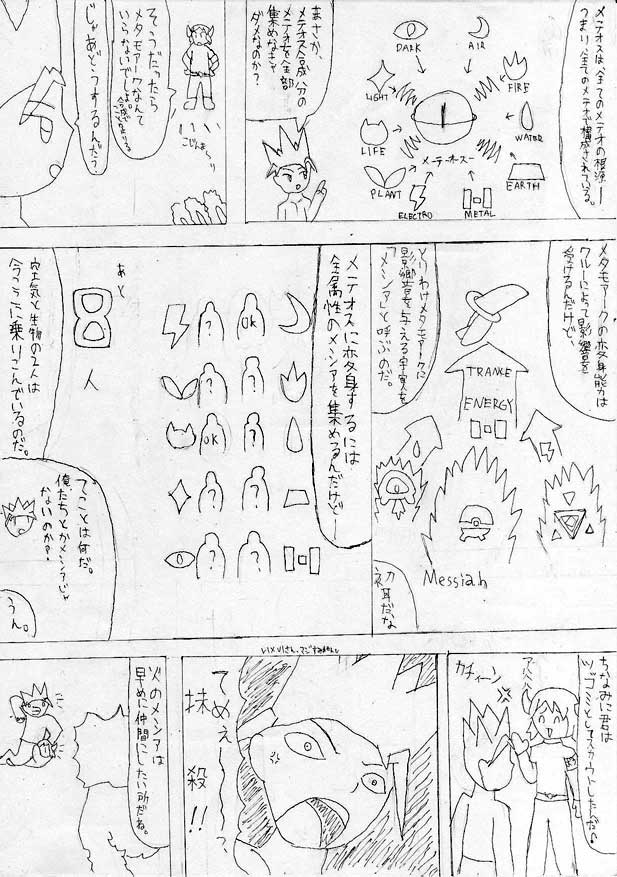 メテオスは、全てのメテオの根源―
つまり、全てのメテオで構成されている。
DARK
AIR
LIGHT
FIRE
LIFE
WATER
PLANT
EARTH
ELECTRO
METAL
メーテーオスー
まさか、
メテオス合成分の
メテオを全部
集めなきゃ
ダメなのか?
そうだったら
メタモアークなんて
いらないでしょ。
こじんまり
じゃあどうするんだ?
メタモアークの変身能力は
クルーによって影響を
受けるんだけど、
TRANCE
ENERGY
Messiah
とりわけメタモアークに
影響を与える宇宙人を
「メシア」と呼ぶのだ。
初
耳だな
メテオスに変身するには
全属性のメシアを集めるんだけど―
OK
?
?
?
?
?
OK
?
?
?
?
?
あと
8
人
空気と生物の2人は
今ここに乗りこんでいるのだ。
てことは何だ。
俺たちとかメシアじゃ
ないのか?
うん。
ちなみに君は
ツッコミとしてスカウトしたんだよ
アハハ
カチィーン
さん、マジすみません。
てめぇ~~っ、
抹殺!!
火のメシアは
早めに仲間にしたい所だね。